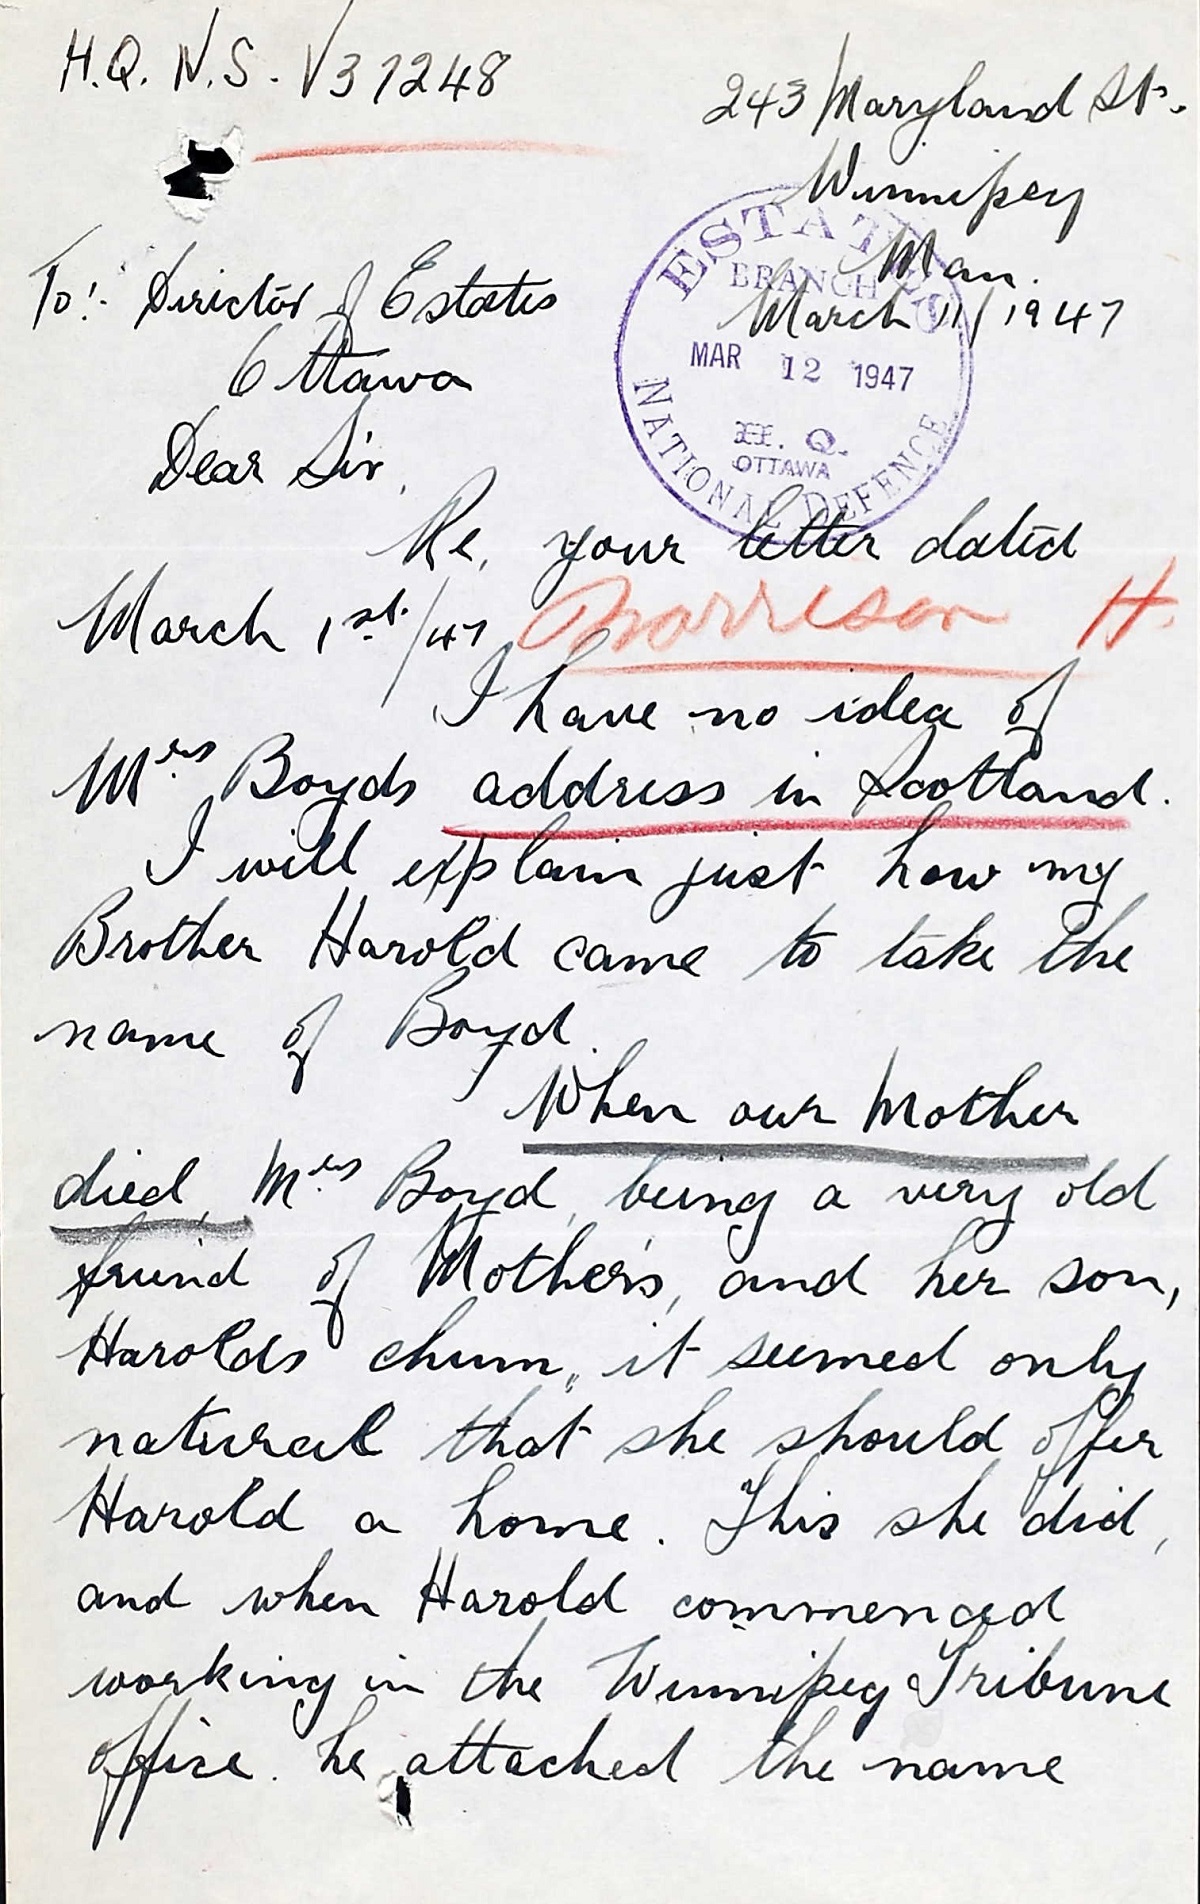 H.Q. N.S. - V31248
243 Maryland St.
Winnipeg
Man.
March 11/1947
ESTATES
BRANCH
MAR 12 1947
H. Q.
OTTAWA
NATIONAL DEFENCE
To:- Director of Estates
Ottawa
Dear Sir,
Re, your letter dated
March 1st./47
Morrison H.
I have no idea of
Mrs Boyds address in Scotland.
I will explain just how my
Brother Harold came to take the
name of Boyd.
When our Mother
died, Mrs Boyd, being a very old
friend of Mother's, and her son,
Harolds chum, it seemed only
natural that she should offer
Harold a home. This she did,
and when Harold commenced
working in the Winnipeg Tribune
office. he attached the name